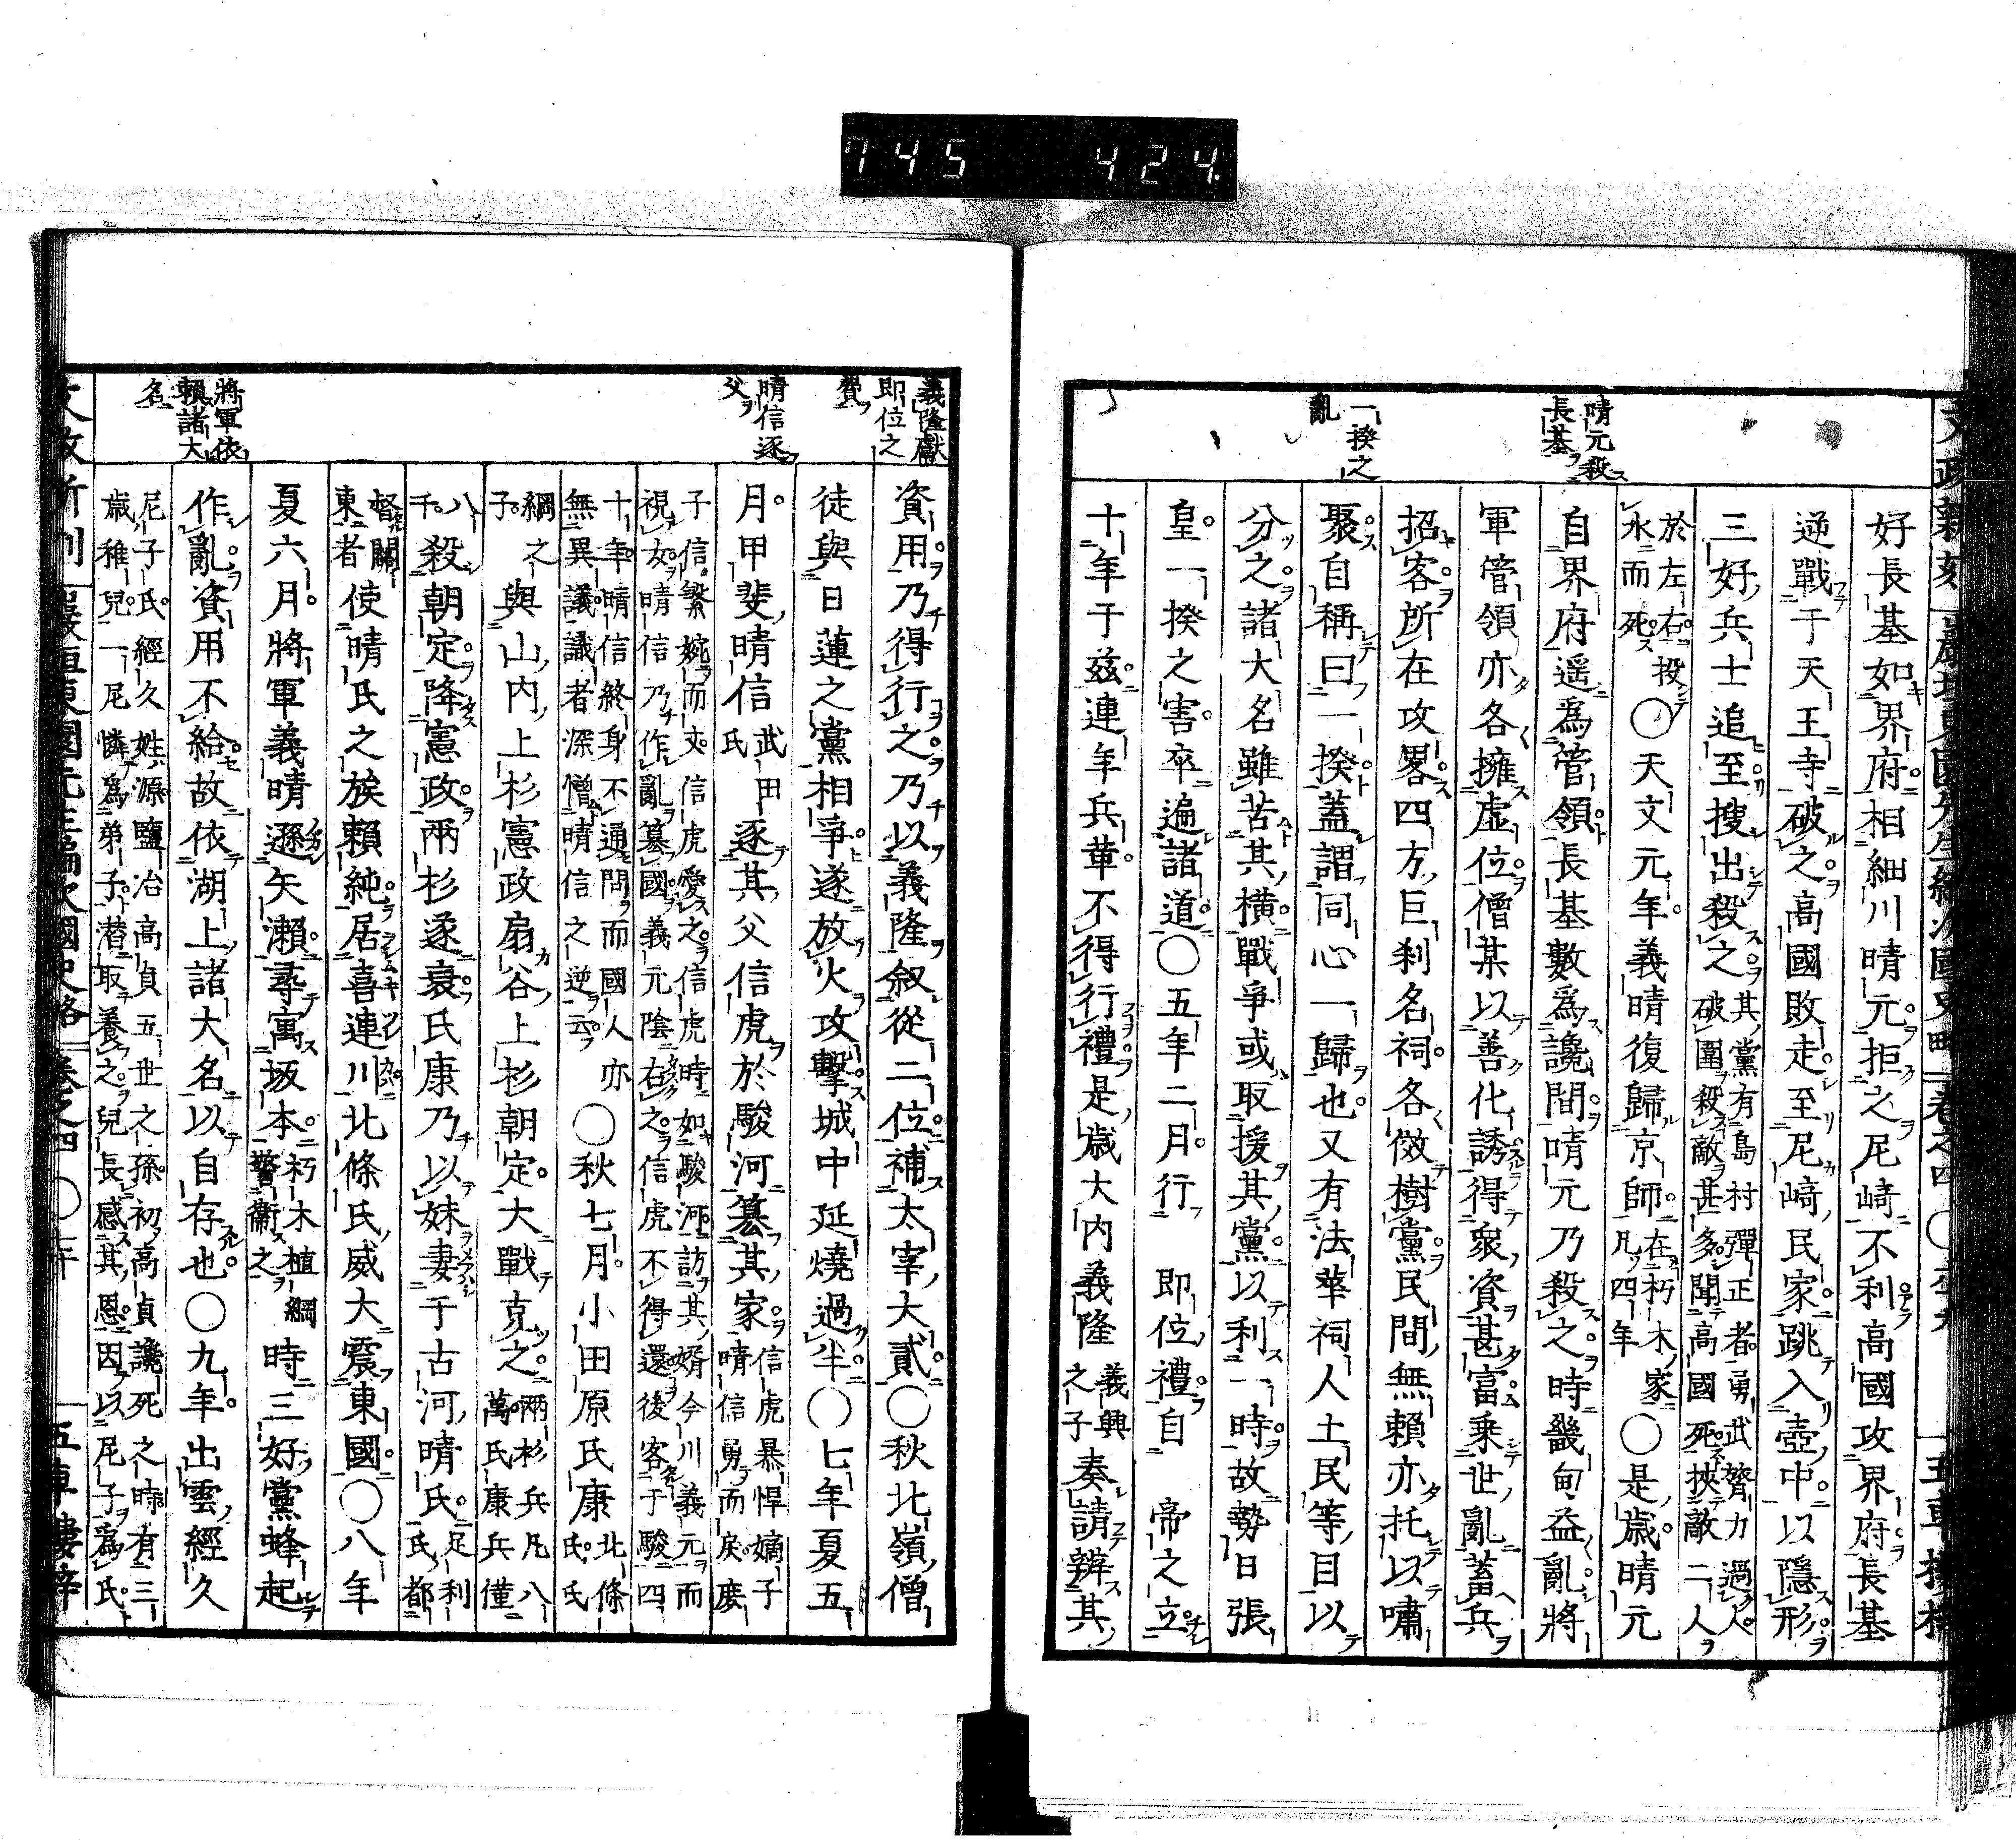 745 424
晴元殺
長基
一揆之
亂
好長基如界府相細川晴元拒之尼崎不利高國攻界府長基
逆戰于天王寺破之高國敗走至尼崎民家跳入壺中以隱形
三好兵士追至搜出殺之其黨有島村彈正者勇武膂力過人
破圍殺敵甚多聞高國死挾敵二人
於左右投
水而死〇天文元年義晴復歸京師在朽木家
凡四年〇是歲晴元
自界府遥爲管領長基數爲讒間晴元乃殺之時畿甸益亂將
軍管領亦各擁虛位僧某以善化誘得衆資甚富乗世亂蓄兵
招客所在攻畧四方巨刹名祠各傚樹黨民間無賴亦托以嘯
聚自稱曰一揆蓋謂同心一歸也又有法華祠人土民等目以
分之諸大名雖苦其横戰爭或取援其黨以利一時故勢日張
皇一揆之害卒遍諸道〇五年二月行 即位禮自 帝之立
十年于茲連年兵革不得行禮是歲大内義隆義興
之子奏請辨其
義隆獻
即位之
費
晴信逐
父
將軍依
賴諸大
名
資用乃得行之乃以義隆叙從二位補太宰大貳〇秋北嶺僧
徒與日蓮之黨相爭遂放火攻擊城中延燒過半〇七年夏五
月甲斐晴信武田
氏逐其父信虎於駿河簒其家信虎暴悍嫡子
晴信勇而戾庶
子信繁婉而文信虎愛之信虎時如駿河訪其婿今川義元而
視女晴信乃作亂簒國義元陰右之信虎不得還後客于駿四
十年晴信終身不通問而國人亦
無異議識者深憎晴信之逆云〇秋七月小田原氏康北條
氏氏
綱之
子與山内上杉憲政扇谷上杉朝定大戰克之兩杉兵凡八
萬氏康兵僅
八
千殺朝定降憲政兩杉遂衰氏康乃以妹妻于古河晴氏足利
氏都
督關
東者使晴氏之族賴純居喜連川北條氏威大震東國〇八年
夏六月將軍義晴遜矢瀨尋寓坂本朽木植綱
警衞之時三好黨蜂起
作亂資用不給故依湖上諸大名以自存也〇九年出雲經久
尼子氏經久姓源鹽冶高貞五世之孫初高貞讒死之時有三
歲稚兒一尼憐爲弟子潜取養之兒長感其恩因以尼子爲氏